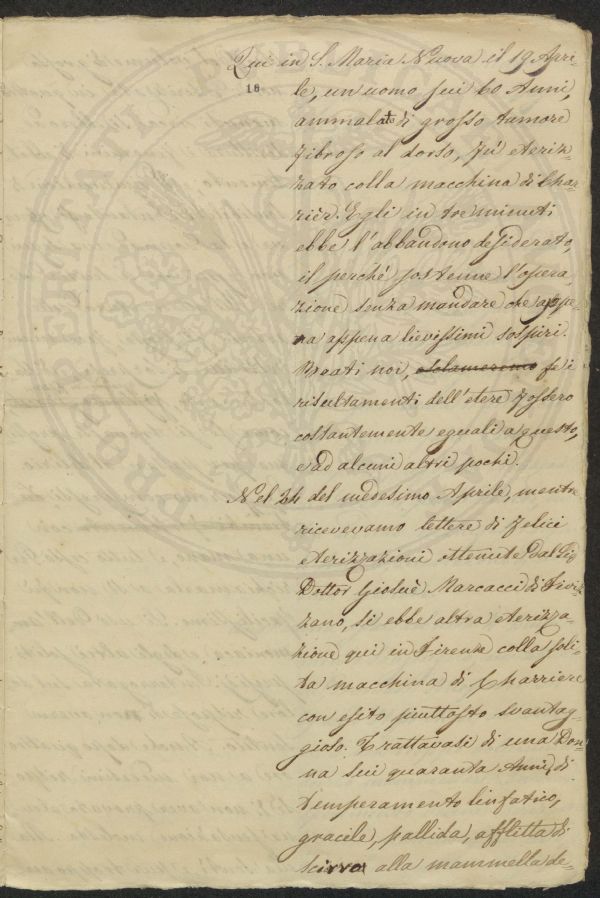 Qui in S. Maria Nuova il 19 Apri-
18
le, un uomo sui 60 Anni,
ammalato di grosso tumore
fibroso al dorso, fu eteriz-
zato colla macchina di Char-
rièr. Egli in tre minuti
ebbe l'abbandono desiderato,
il perché sostenne l'opera-
zione senza mandare che appe-
na appena lievissimi sospiri.
Beati noi, esclameremo se i
risultamenti dell'etere fossero
costantemente eguali a questo,
e ad alcuni altri pochi.
Nel 24 del medesimo Aprile, mentre
ricevevamo lettere di felici
eterizzazioni ottenute dal Sig.
Dottor Giosuè Marcacci di Fiviz-
zano, si ebbe altra eterizza-
zione qui in Firenze colla soli-
ta macchina di Charriere
con esito piuttosto svantag-
gioso. Trattavasi di una Don-
na sui quaranta Anni, di
temperamento linfatico,
gracile, pallida, afflitta di
scirro alla mammella de-